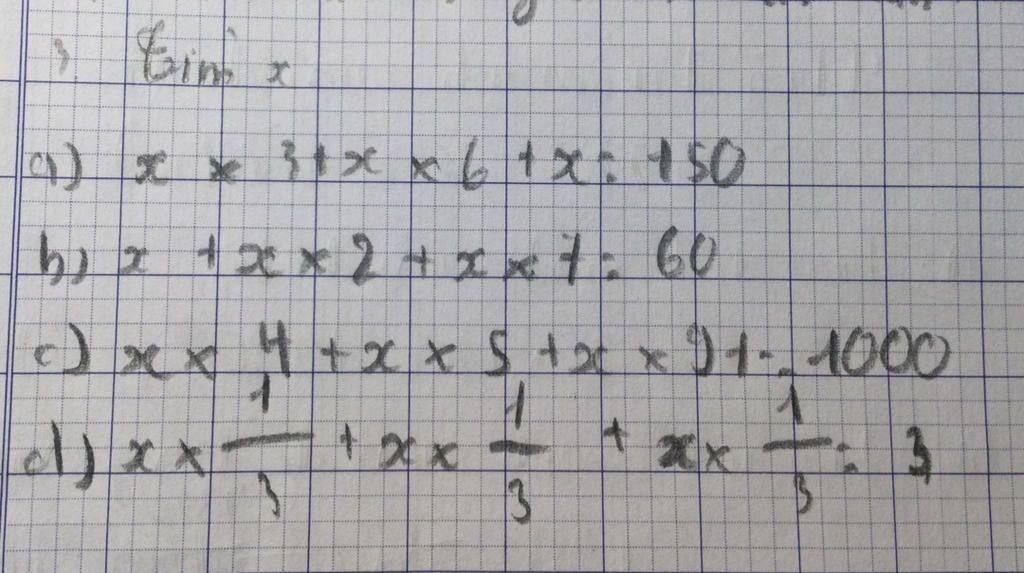 Tìm x
a) x × 3 + x × 6 + x = 150
b) x + x × 2 + x × 7 = 60
c) x × 4 + x × 5 + x × 91 = 1000
d) x × 1/3 + x × 1/3 + x × 1/3 = 3